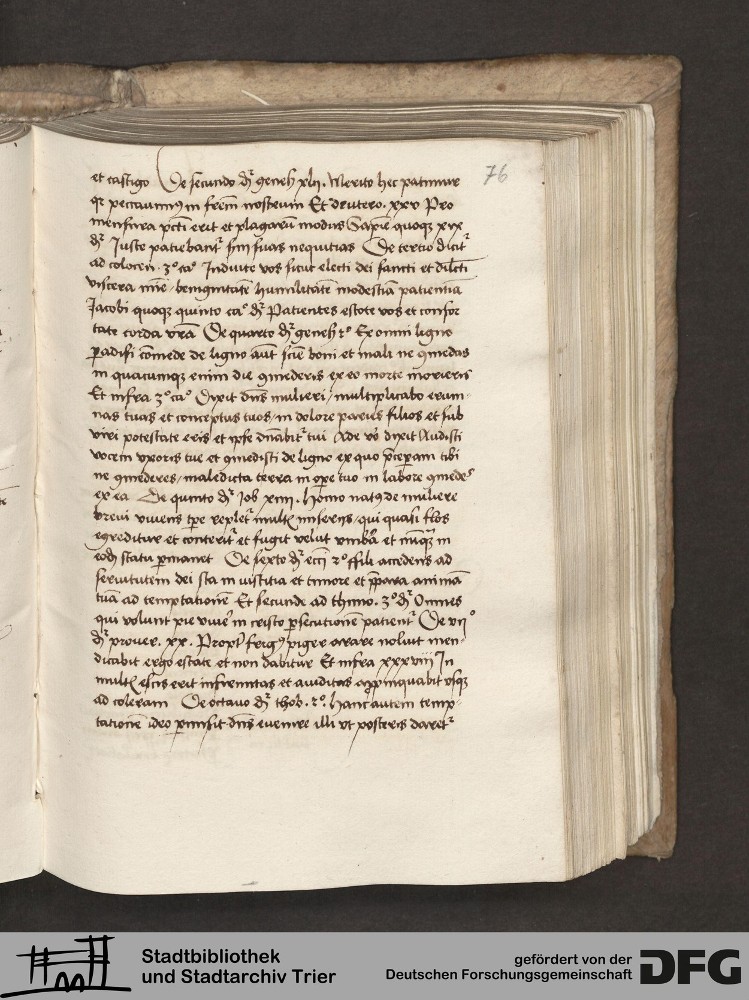 76
et castigo De secundo dr̄ geneſ xlij. Merito hec patimur
qr peccauimꝰ in frēm nostrum Et deutero. xxv Pro
mensura pcti erit et plagarū modus Sapiē quoqꝫ xix
dr̄ Juste patiebant᷑ scdm suas nequitias De tertio dicit᷑
ad colocen. 3º caº Induite vos sicut electi dei sancti et dilcti
viscera mīe / benignitatē humilitatē modestiā patientiā
Jacobi quoqꝫ quinto caº dr̄ Patientes estote vos et confor
tate corda vrā De quarto dr̄ geneſ 2º Ex omni ligno
ꝑadisi cōmede de ligno aut sciē boni et mali ne ꝯmedas
in quacumqꝫ enim die ꝯmederis ex eo morte morieris
Et infra 3º caº Dixit dns mulieri / multiplicabo erum-
nas tuas et conceptus tuos / in dolore paries filios et sub
viri potestate eris et ipse dnābit᷑ tui Ade vº dixit Audisti
vocem vxoris tue et ꝯmedisti de ligno ex quo p̄ceperam tibi
ne ꝯmederes / maledicta terra in oꝑe tuo in labore ꝯmedeˢ
ex ea De quinto dr̄ Job xiiij. Homo natꝰ de muliere
breui viuens tꝑe replet᷑ multꝭ miserijs / qui quasi flos
egreditur et conterit᷑ et fugit velut vmbra et nūqꝫ in
eodē statu ꝑmanet De sexto dr̄ ecci 2º ffili accedens ad
seruitutem dei sta in iustitia et timore et p̄para animā
tuā ad temptationē Et secunde ad thimo. 3º dr̄ Omnes
qui volunt pie viuē in cristo ꝑsecutionē patient᷑ De vijº
dr̄ prouer. xx. Propt᷑ frigꝰ piger arare noluit men-
dicabit ergo estate et non dabitur Et infra xxxviij In
multꝭ escis erit infirmitas et auiditas appropinquabit vsqꝫ
ad coleram De octauo dr̄ thob. 2º. hanc autem temp-
tationē ideo ꝑmisit dns euenire illi vt posteris daret᷑
Stadtbibliothek
und Stadtarchiv Trier
gefördert von der
Deutschen Forschungsgemeinschaft
DFG